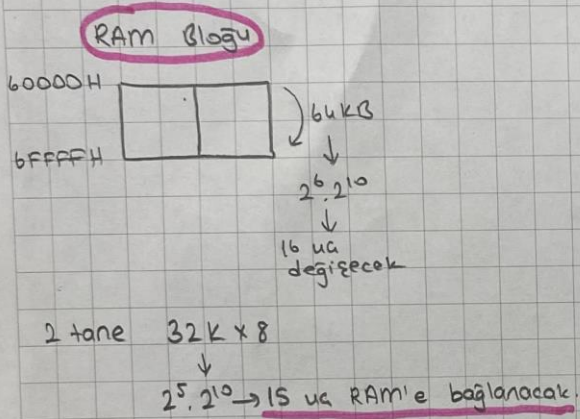 RAM Bloğu
60000H
64KB
6FFFFH
↓
2⁶.2¹⁰
↓
16 ua
değişecek
2 tane 32K x 8
↓
2⁵.2¹⁰→15 ua RAM'e bağlanacak.